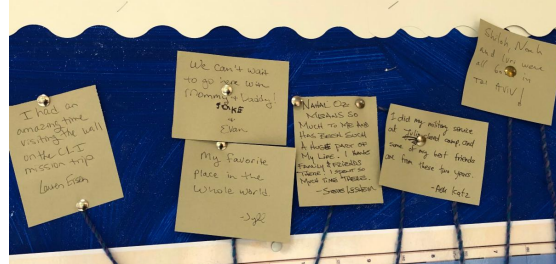 I had an
amazing time
visiting the wall
on the CLI
mission trip
We can't wait
to go here with
Mommy + Daddy!
JAKE
+
Evan
My favorite
place in the
whole world.
NAHAL OZ
MEANS SO
MUCH TO ME AND
HAS BEEN SUCH
A HUGE PART OF
MY LIFE. I HAVE
FAMILY & FRIENDS
THERE! I SPENT SO
MUCH TIME THERE.
I did my military service
at camp, and
some of my best friends
are from these two years.
- Adi Katz
Shilah, Noah
and Lori were
all born in
TEL AVIV!